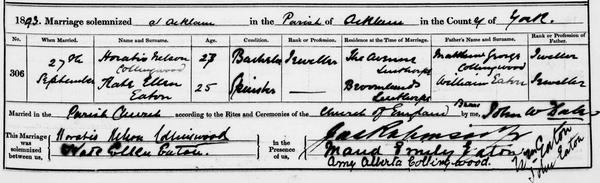 1893. Marriage solemnized at Acklam in the Parish of Acklam in the County of York.
No. When Married. Name and Surname. Age. Condition. Rank or Profession. Residence at the Time of Marriage. Father's Name and Surname. Rank or Profession of Father.
306 27th September Horatio Nelson Collingwood 27 Bachelor Jeweller The Avenue Linthorpe Matthew George Collingwood Jeweller
Kate Ellen Eaton 25 Spinster — Broomlands Linthorpe William Eaton Jeweller
Married in the Parish Church according to the Rites and Ceremonies of the Church of England Banns by me, John W
This Marriage was solemnized between us, Horatio Nelson Collingwood
Kate Ellen Eaton.
In the Presence of us,
Maud Emily Eaton
Amy Alberta Collingwood.
Wm Eaton
John Eaton